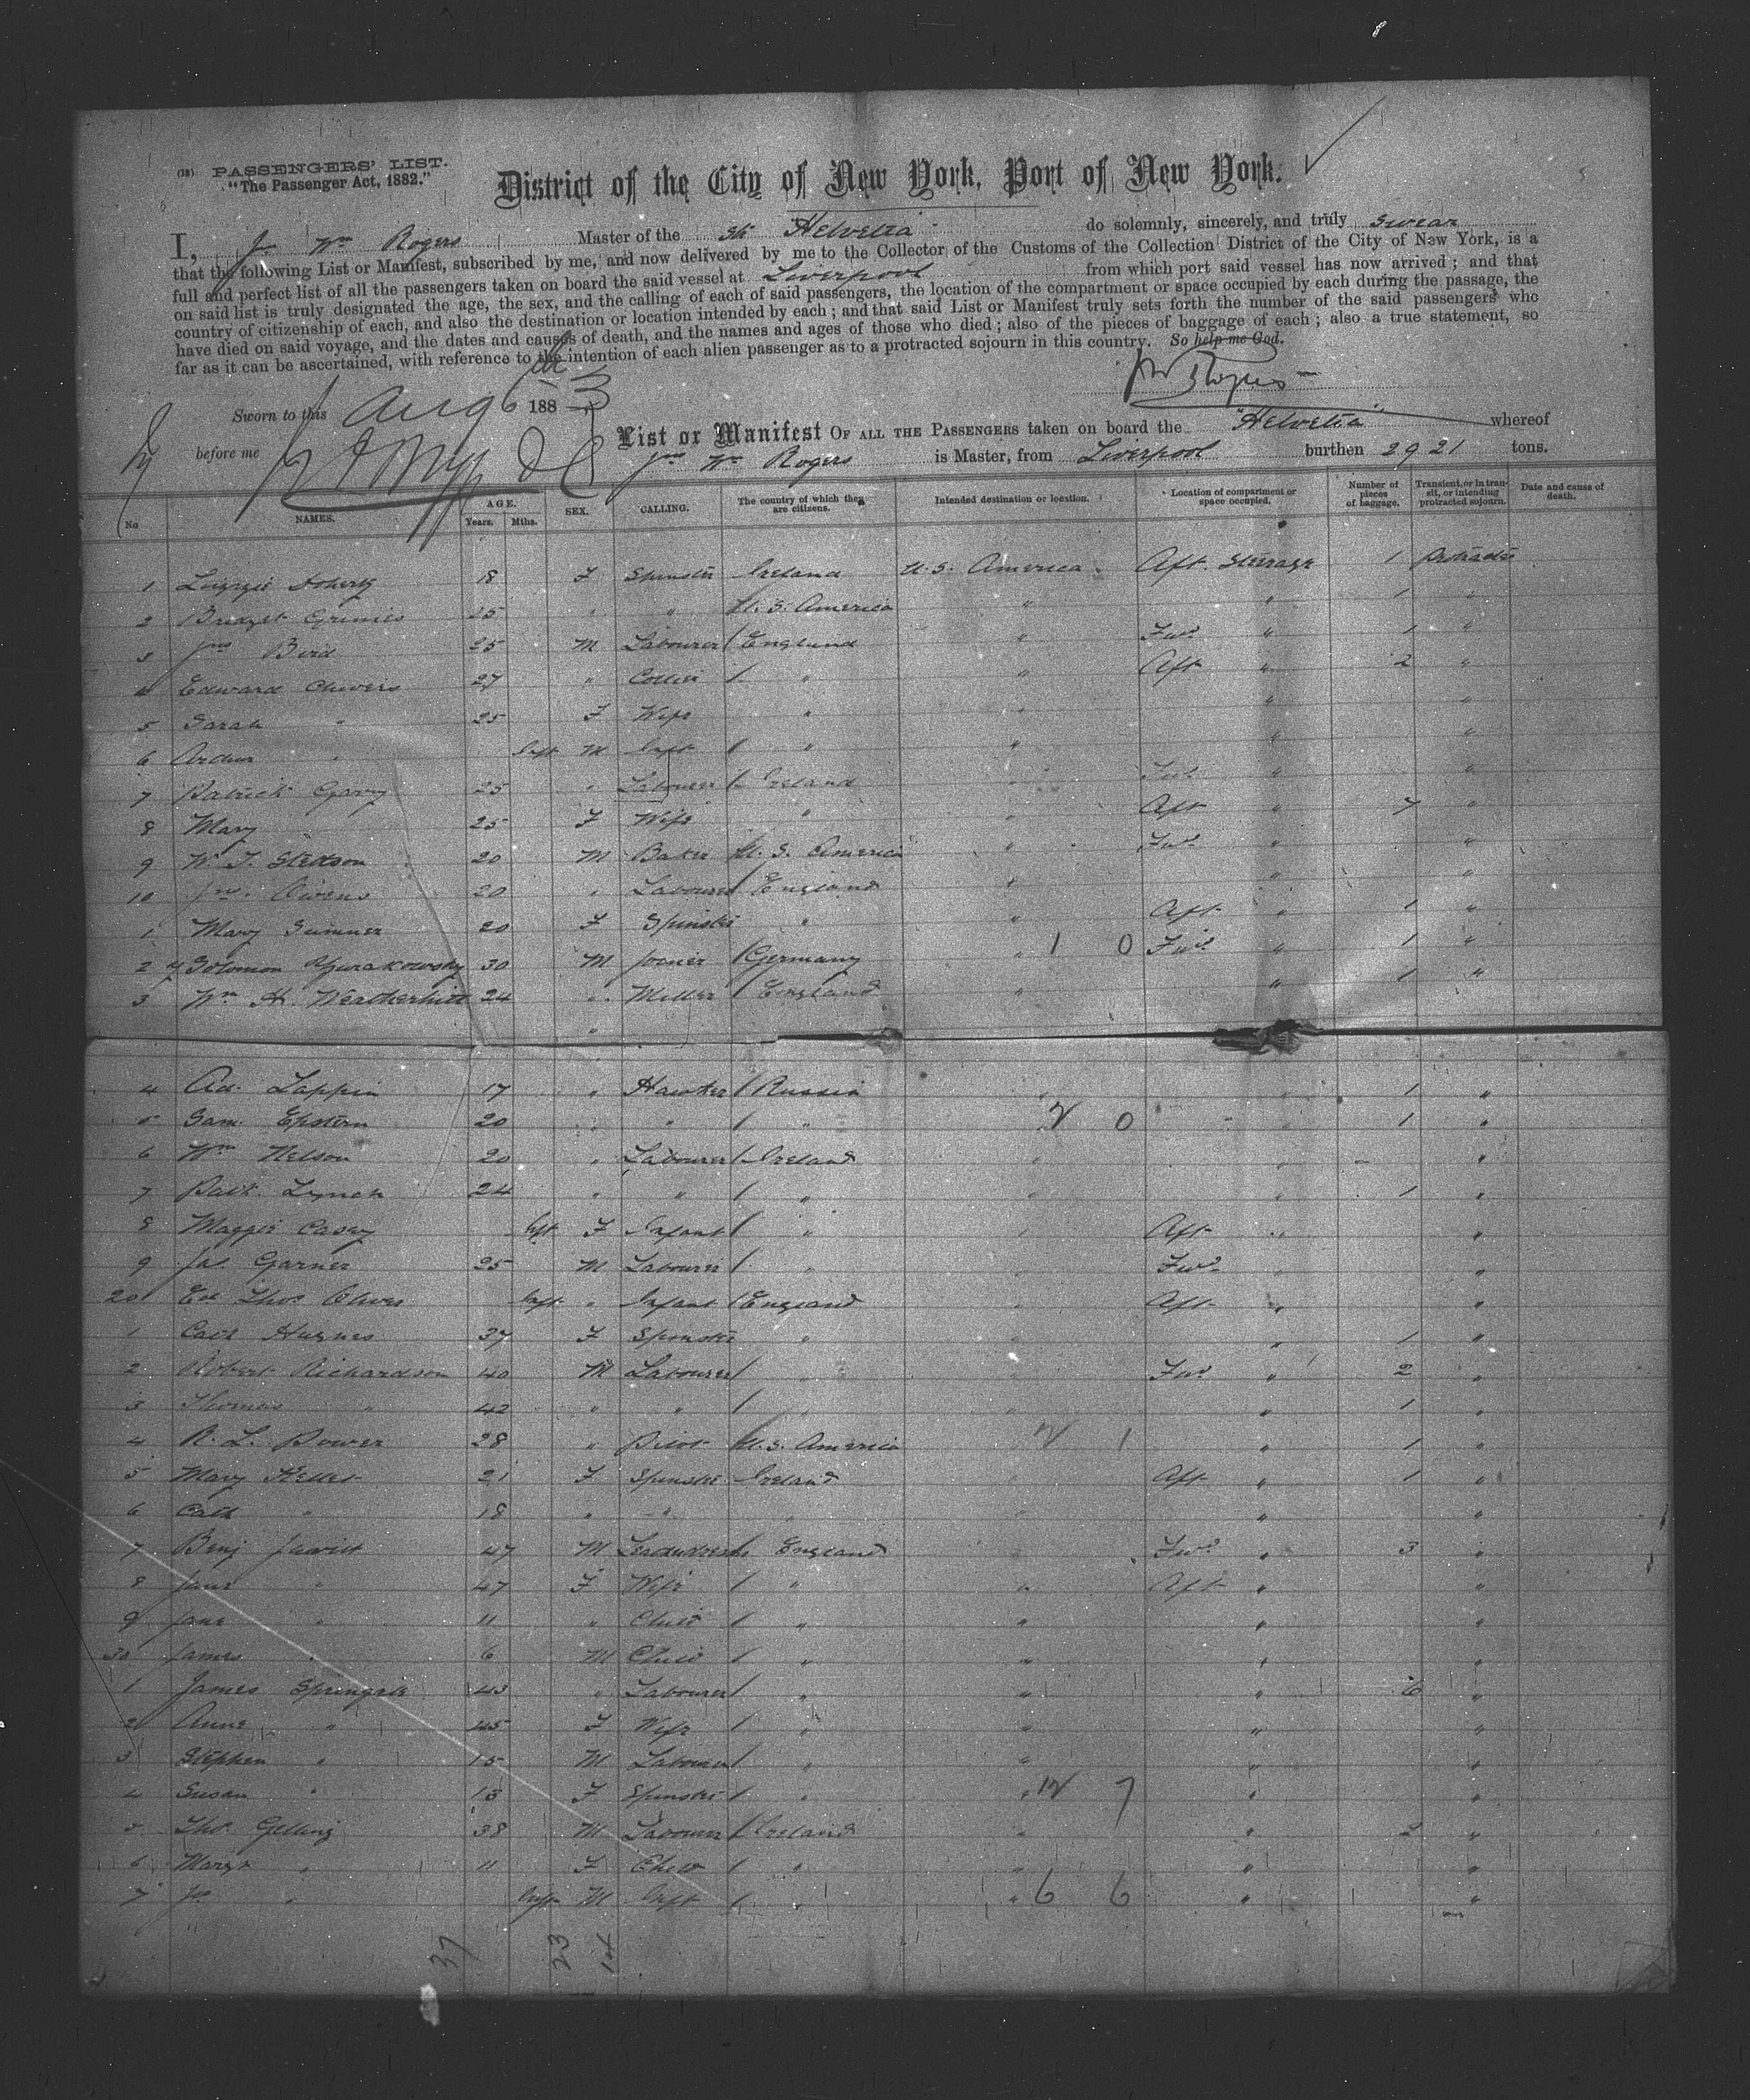 (18) PASSENGERS' LIST.
"The Passenger Act, 1882."
District of the City of New York, Port of New York.
I, Jno Wm Rogers Master of the Str Helvetia do solemnly, sincerely, and truly swear
that the following List or Manifest, subscribed by me, and now delivered by me to the Collector of the Customs of the Collection District of the City of New York, is a
full and perfect list of all the passengers taken on board the said vessel at Liverpool from which port said vessel has now arrived; and that
on said list is truly designated the age, the sex, and the calling of each of said passengers, the location of the compartment or space occupied by each during the passage, the
country of citizenship of each, and also the destination or location intended by each; and that said List or Manifest truly sets forth the number of the said passengers who
have died on said voyage, and the dates and causes of death, and the names and ages of those who died; also of the pieces of baggage of each; also a true statement, so
far as it can be ascertained, with reference to the intention of each alien passenger as to a protracted sojourn in this country. So help me God.
Jno W Rogers
Sworn to this Aug 6th 1883
before me
List or Manifest OF ALL THE PASSENGERS taken on board the "Helvetia" whereof
Jno Wm Rogers is Master, from Liverpool burthen 2921 tons.
No NAMES. AGE. Years. Mths. SEX. CALLING. The country of which they are citizens. Intended destination or location. Location of compartment or space occupied. Number of pieces of baggage. Transient, or in transit, or intending protracted sojourn. Date and cause of death.
1 Lizzie Doherty 18 F Spinster Ireland U.S. America Aft. Steerage 1 Protracted
2 Bridget Grimes 25 " " U.S. America " " 1 "
3 Jno Bird 25 M Labourer England " Fwd " 1 "
4 Edward Chivers 27 " Collier " " Aft " 2 "
5 Sarah " 25 F Wife " " " "
6 Arthur " Inft M Inft " " " "
7 Patrick Gary 25 " Labourer Ireland " Fwd " "
8 Mary " 25 F Wife " " Aft 7 "
9 W. J. Stedson 20 M Baker U.S. America " Fwd " "
10 Jno. Owens 20 " Labourer England " " "
1 Mary Sumner 20 F Spinster " " Aft " 1 "
2 Solomon 30 M Joiner Germany " 1 0 Fwd " 1 "
3 Wm H. Weatherhill 24 " Miller England " " 1 "
4 Ad. Lappin 17 " Hawker Russia " " 1 "
5 Sam. Epstein 20 " " " 2 0 " 1 "
6 Wm Nelson 20 " Labourer Ireland " " "
7 Patk. Lynch 24 " " " " " 1 "
8 Maggie Casey Inft F Infant " " Aft " "
9 Jas. Garner 25 M Labourer " " Fwd " "
20 Ed Thos Inft " Infant England " Aft " "
1 Cath Hughes 37 F Spinster " " " 1 "
2 Robert Richardson 40 M Labourer " " Fwd " 2 "
3 Thomas " 42 " " " " " 1 "
4 R. L. Power 28 " Pilot U.S. America 2 1 " 1 "
5 Mary Kellet 21 F Spinster Ireland " Aft " 1 "
6 Cath " 18 " " " " " "
7 Benj 47 M England Fwd " 3 "
8 Jane " 47 F Wife " " Aft " "
9 Jane " 11 " Child " " " "
30 James " 6 M Child " " " "
1 James 43 " Labourer " " " 6 "
2 Anne " 45 F Wife " " " "
3 Stephen " 15 M Labourer " " " "
4 Susan " 13 F Spinster " " 12 7 " "
5 Thos. Gelling 38 M Labourer Ireland " " 2 "
6 " 11 F Child " " " "
7 Jno " Inft M Inft " " 6 6 " "
37 23 14